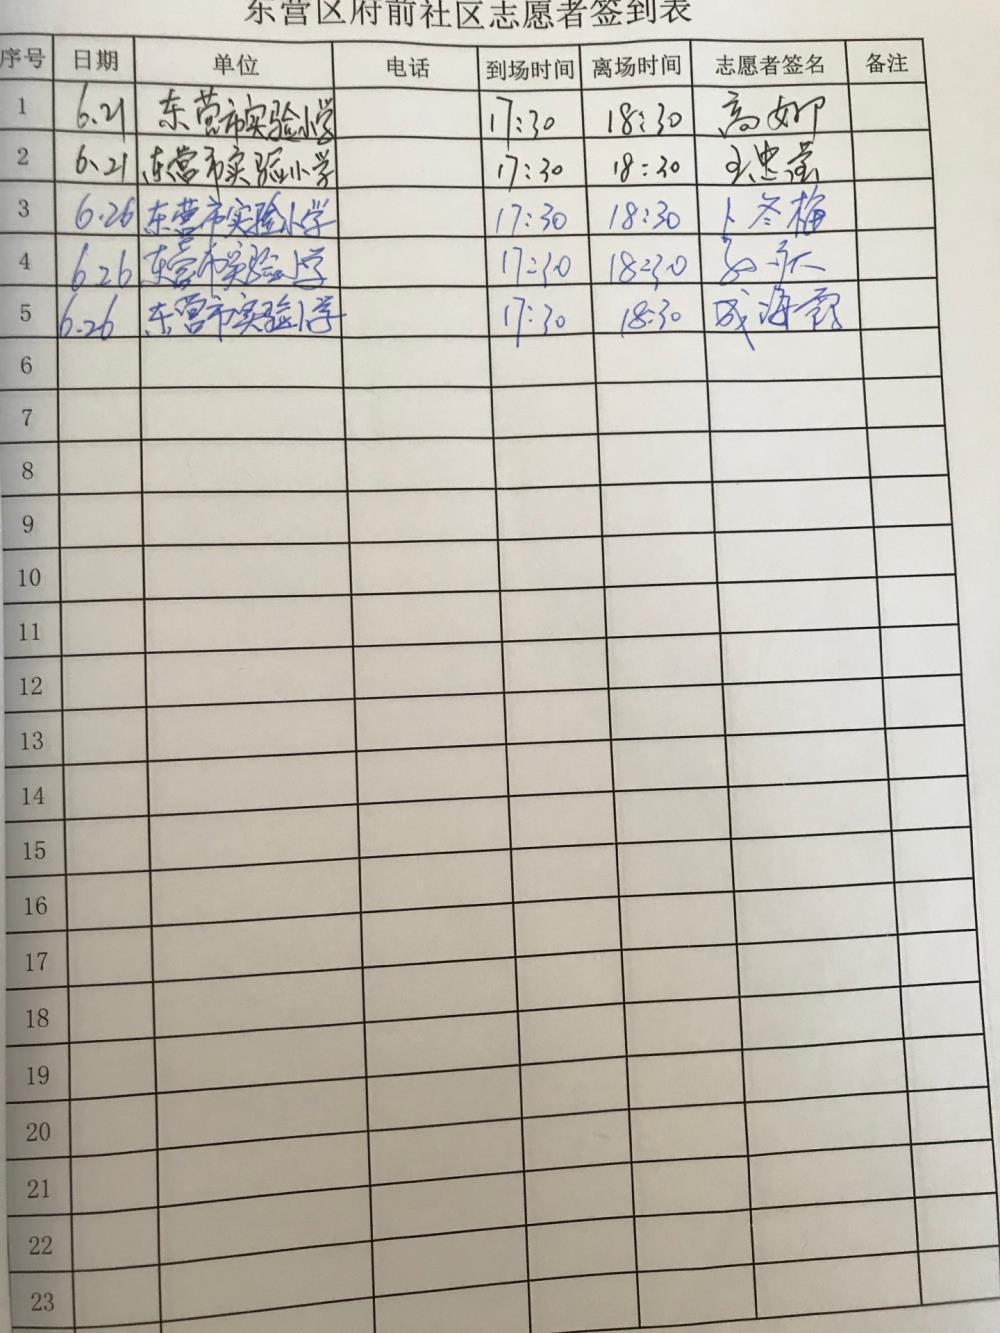 东营区府前社区志愿者签到表
序号 日期 单位 电话 到场时间 离场时间 志愿者签名 备注
1 6.21 东营市实验小学 17:30 18:30 高娜
2 6.21 东营市实验小学 17:30 18:30 王忠莹
3 6.26 东营市实验小学 17:30 18:30 卜冬梅
4 6.26 东营市实验小学 17:30 18:30
5 6.26 东营市实验小学 17:30 18:30 成海霞
6
7
8
9
10
11
12
13
14
15
16
17
18
19
20
21
22
23